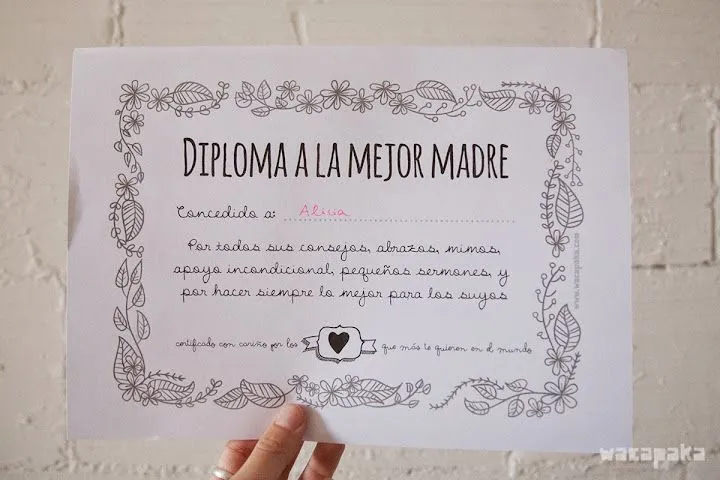 DIPLOMA A LA MEJOR MADRE
Concedido a: Alicia
Por todos sus consejos, abrazos, mimos,
apoyo incondicional, pequeños sermones, y
por hacer siempre lo mejor para los suyos
certificado con cariño por los que más te quieren en el mundo
www.wakapaka.com
wakapaka